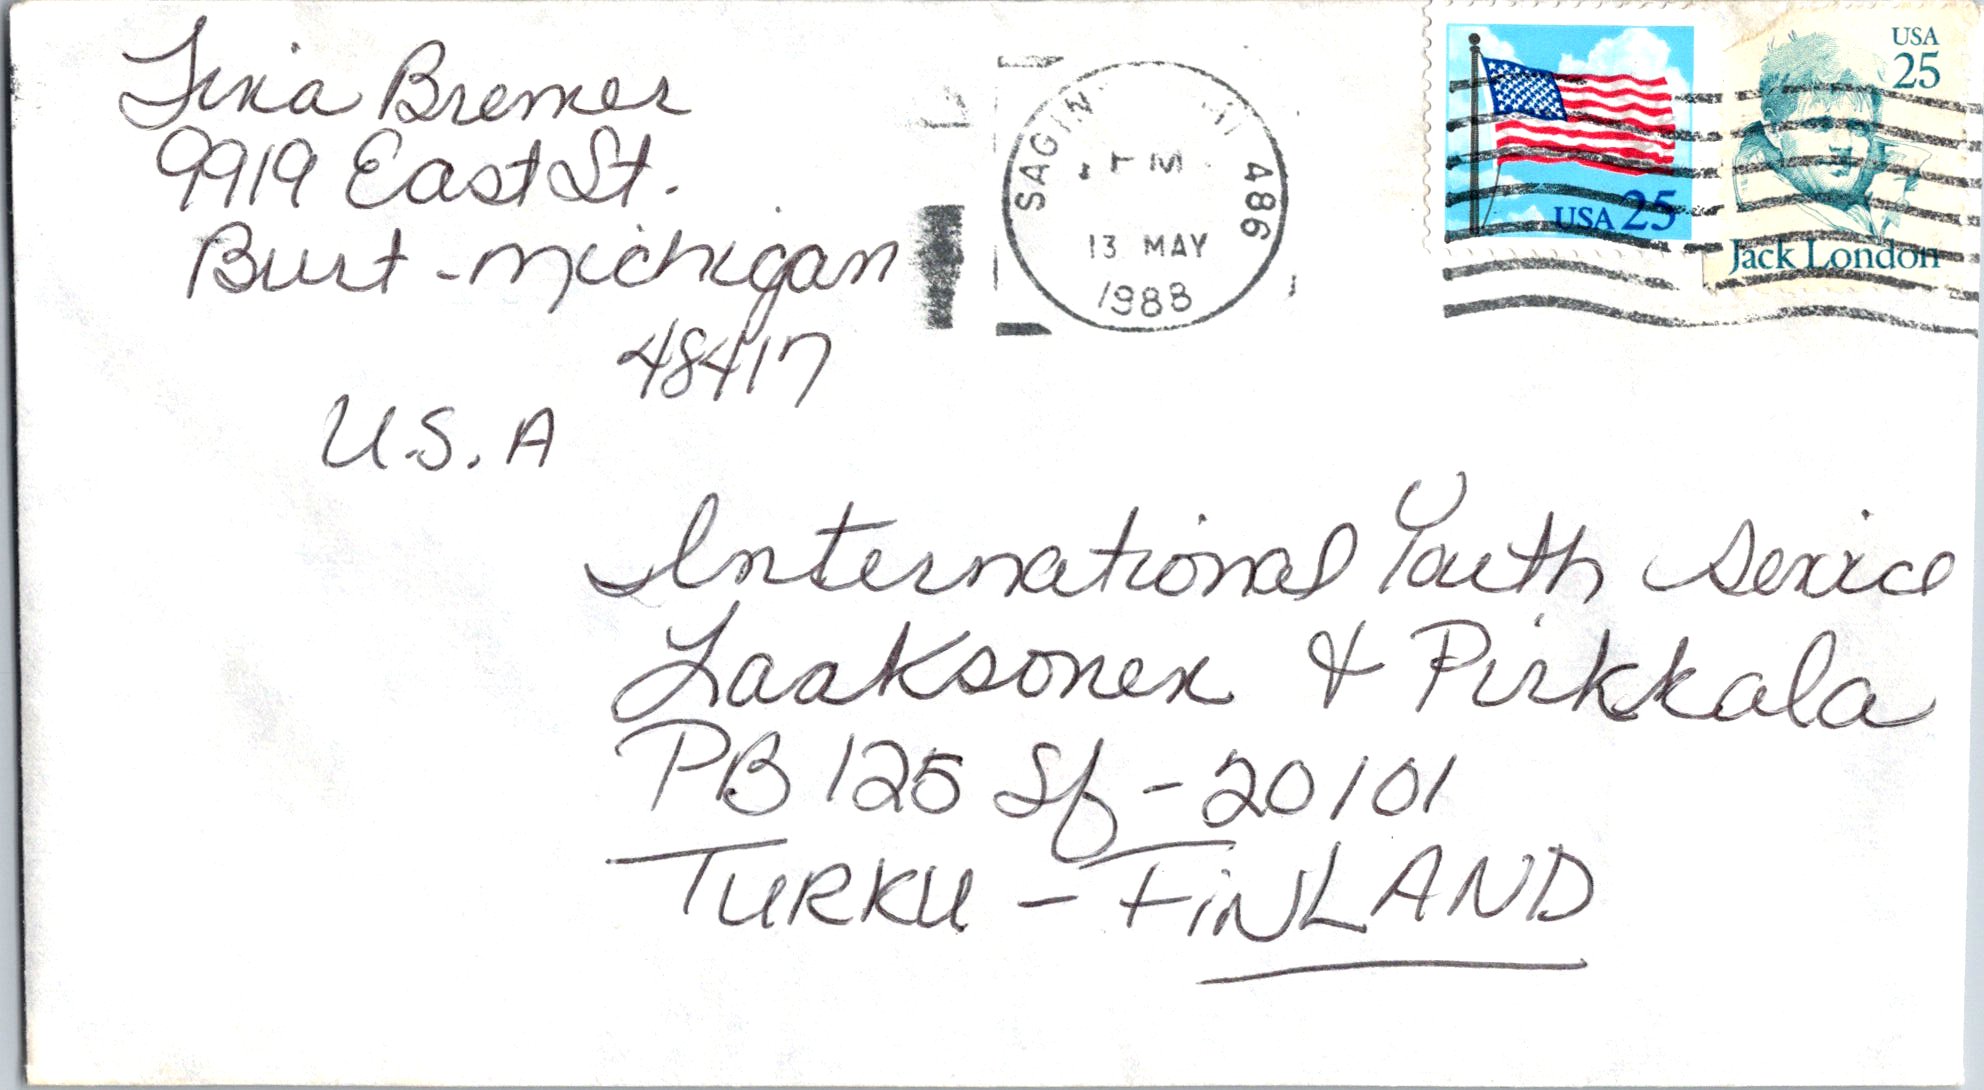 Tina Bremer
9919 East St.
Burt - Michigan
48417
U.S.A
SAGIN MI 486
PM
13 MAY
1988
USA 25
USA
25
Jack London
International Youth Service
Laaksonen & Pirkkala
PB 125 Sf - 20101
TURKU - FiNLAND